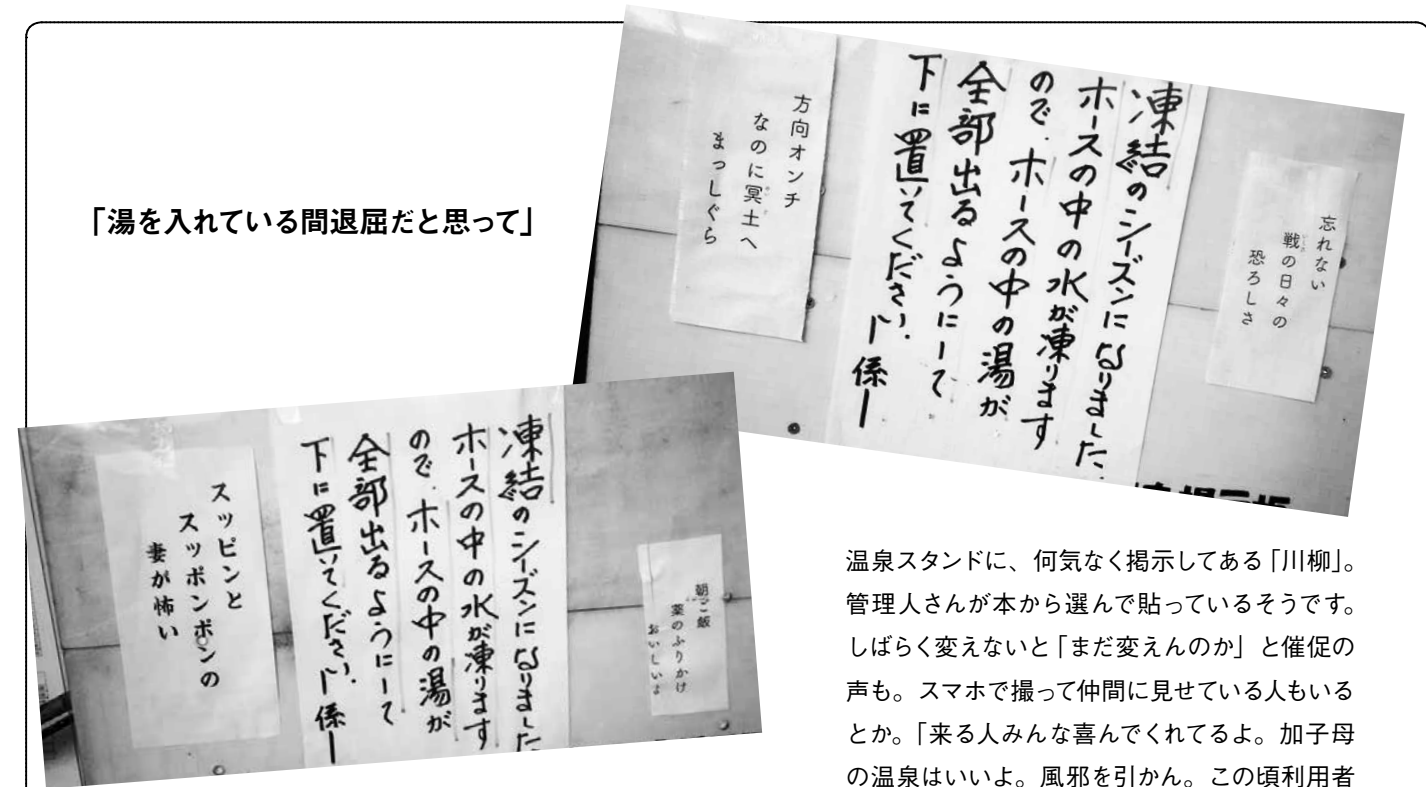 「湯を入れている間退屈だと思って」
忘れない
戦の日々の
恐ろしさ
凍結のシーズンになりました.
ホースの中の水が凍ります
ので.ホースの中の湯が
全部出るようにして
下に置いてください.
ー係ー
方向オンチ
なのに冥土へ
まっしぐら
朝ご飯
薬のふりかけ
おいしいよ
凍結のシーズンになりました
ホースの中の水が凍ります
ので.ホースの中の湯が
全部出るようにして
下に置いてください.
ー係ー
スッピンと
スッポンポンの
妻が怖い
温泉スタンドに、何気なく掲示してある「川柳」。
管理人さんが本から選んで貼っているそうです。
しばらく変えないと「まだ変えんのか」と催促の
声も。スマホで撮って仲間に見せている人もいる
とか。「来る人みんな喜んでくれてるよ。加子母
の温泉はいいよ。風邪を引かん。この頃利用者